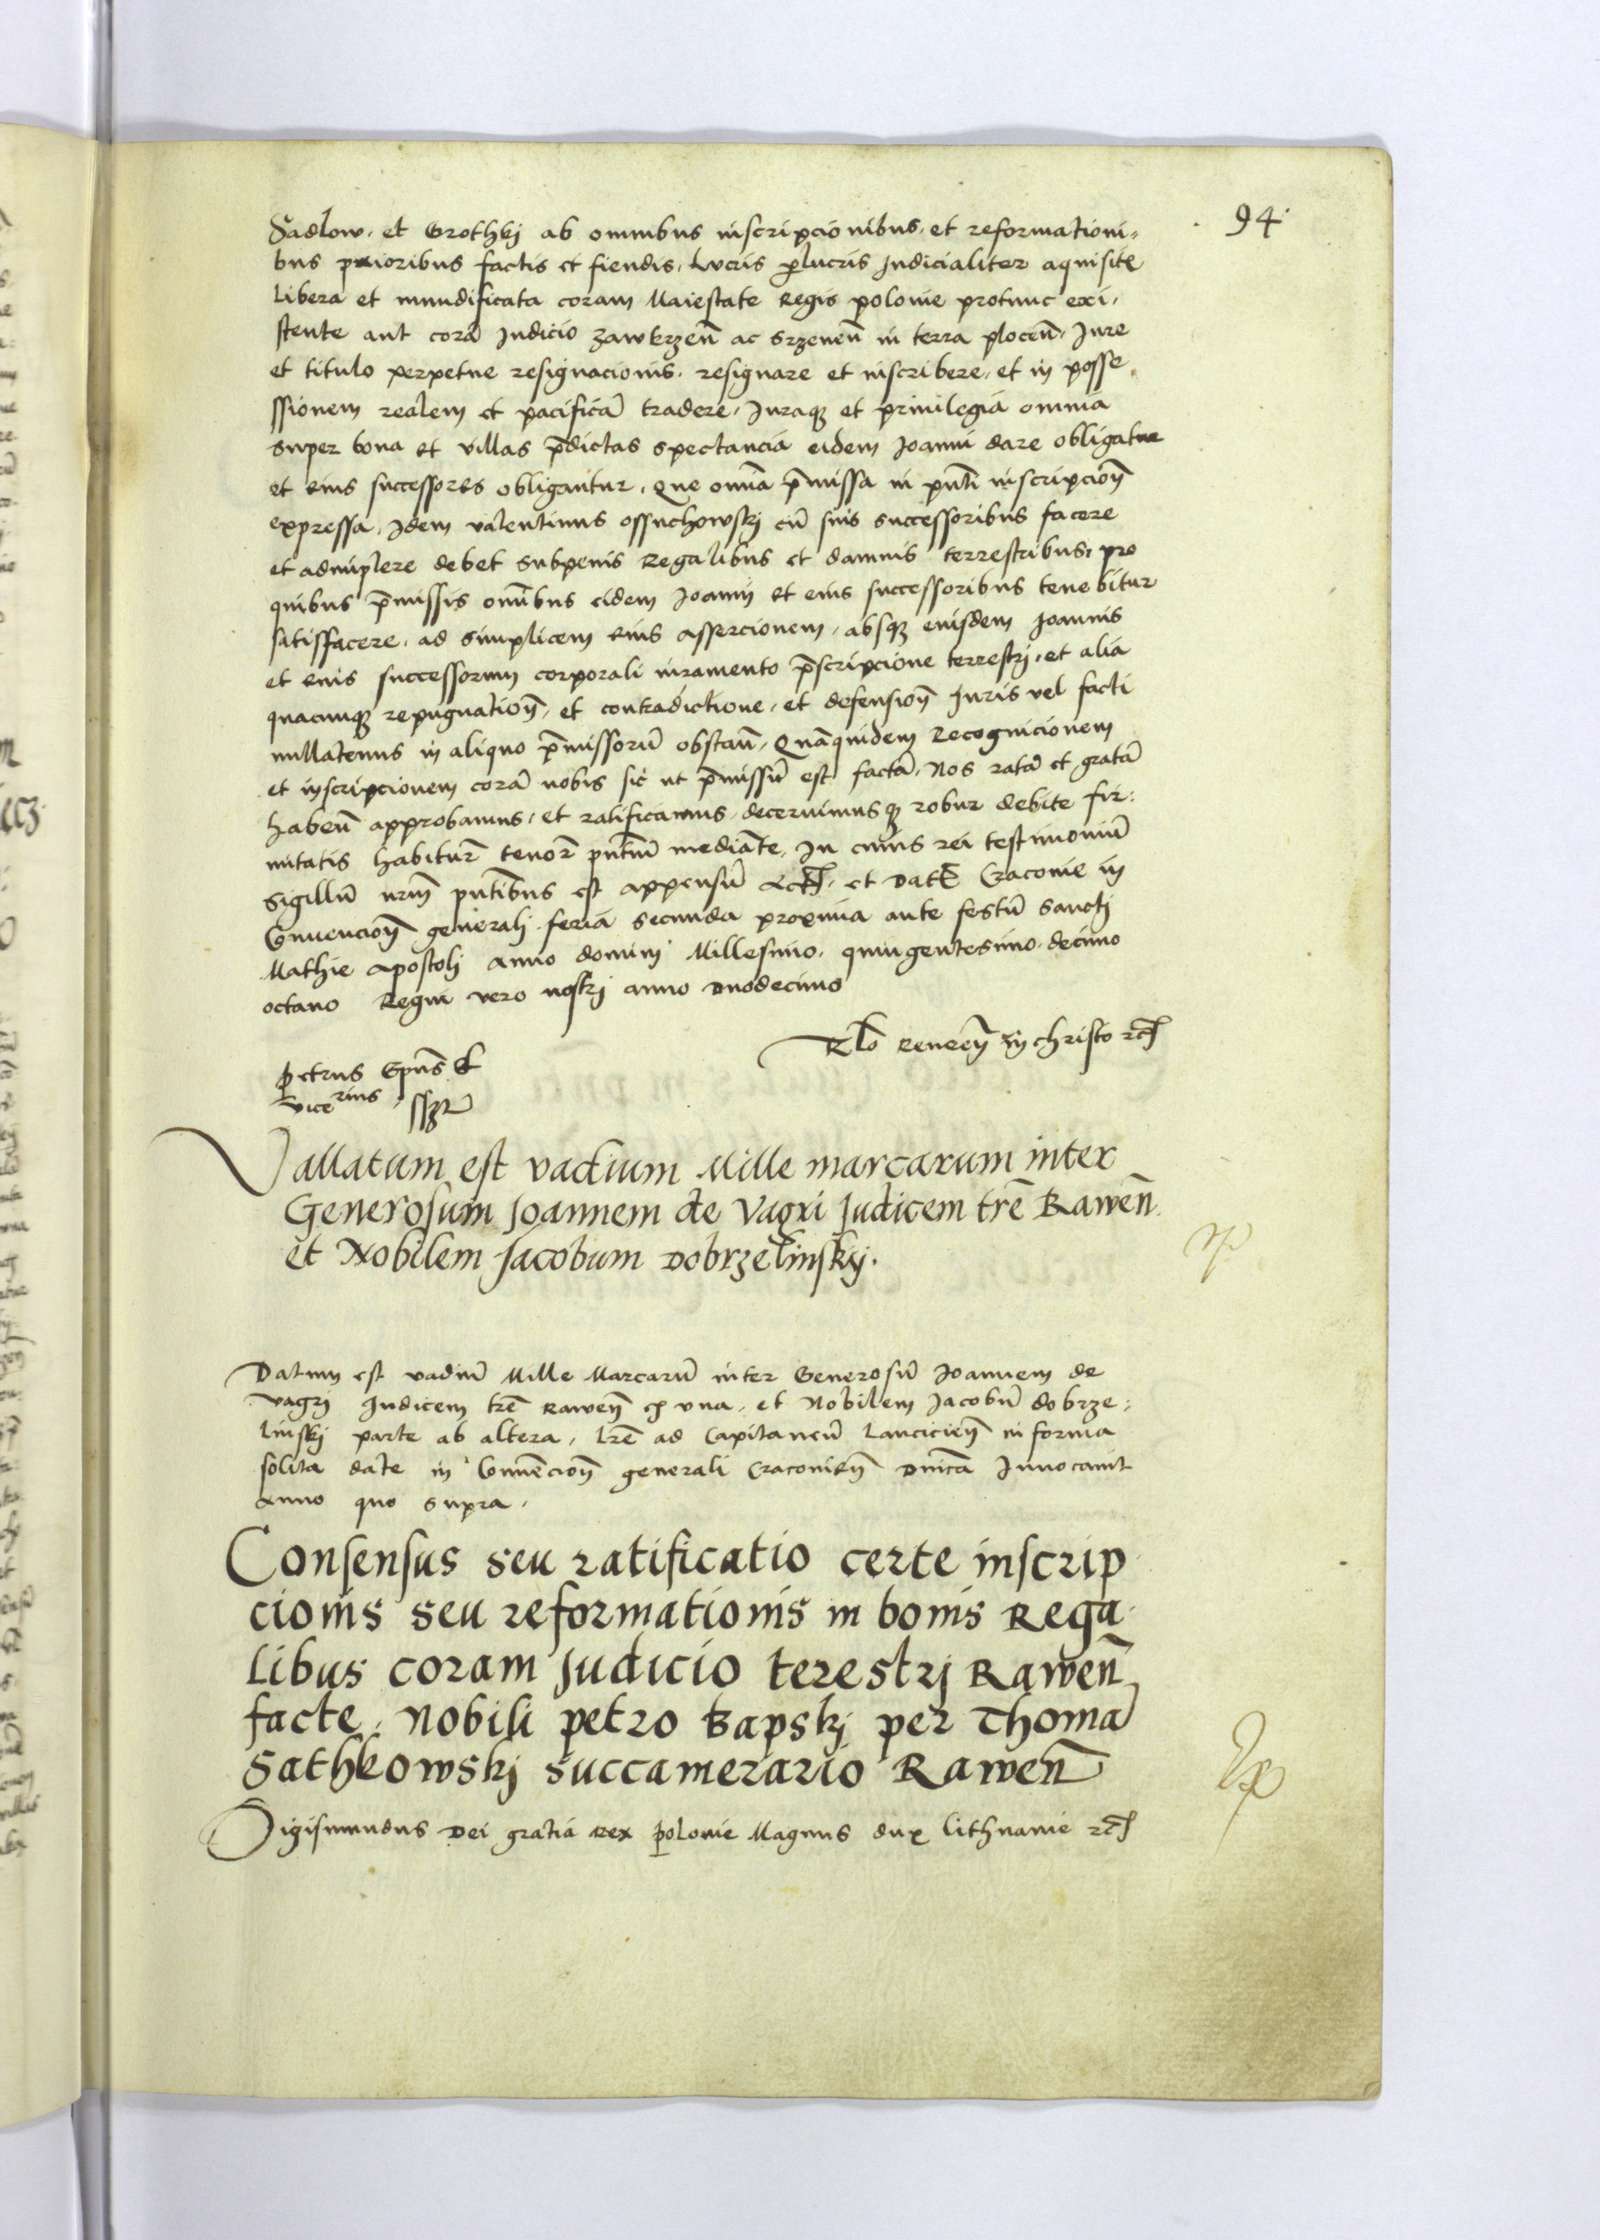 94
Sadlow. et Grothkj ab omnibus inscripcionibus. et reformationi-
bus prioribus factis et fiendis, lucris perlucris Judicialiter aquisite
Libera et mundificata coram Maiestate Regis polonie protunc exi-
stente aut corā Judicio zawkrzeñ ac srzeneñ in terra ploceñ, Jure
et titulo perpetue resignacionis. resignare et inscribere, et in posse
ssionem realem et pacificā tradere, Juraqz et priuilegia omnia
super bona et villas p̄dictas spectancia eidem Joanni dare obligatur
et eius successores obligantur, Que om̄ia p̄missa in pn̄ti inscripcioñ
expressa, Idem valentinus ossuchowskj cū suis successoribus facere
et adimplere debet subpenis Regalibus et damnis terrestribus, pro
quibus p̄missis om̄ibus eidem Joanni et eius successoribus tenebitur
satisfacere, ad simplicem eius assercionem, absqz eiusdem Joannis
et eius successorum corporali iuramento p̄scripcione terrestrj, et alia
quacunqz repugnatioñ, et contradictione, et defensioñ Juris vel facti
nullatenus in aliquo p̄missorū obstañ, Quāquidem Recognicionem
et inscripcionem corā nobis sic ut p̄missū est factā, Nos ratā et gratā
habeñ approbamus, et ratificamus, decernimusqz robur debite fir-
mitatis habiturā tenore pn̄tiū mediāte, In cuius rei testimoniū
Sigillū nrm̄ pn̄tibus est appensū Act, et Dat Cracovie in
Conuencioñ generali feria secunda proxima ante festū sancti
Mathie apostoli anno domini Millesimo quingentesimo decimo
octauo Regni vero nostri anno duodecimo
Rlō Reueren in christo rc
Petrus Ep̄us et
vicerius sszt
Vallatum est vadium Mille marcarum inter
Generosum Joannem de Vagri Judicem trē Raweñ
et Nobilem Jacobum Dobrzelinskj.
Datum est vadiū Mille Marcarū inter Generosū Joannem de
Vagrj Judicem trē Raweñ ex vna, et Nobilem Jacobū dobrze-
linskj parte ab altera, lrē ad Capitaneū Lanciciēn in forma
solita date in Conuēcioñ generali Cracovieñ dn̄ica Inuocauit
anno quo supra.
Consensus seu ratificatio certe inscrip
cionis seu reformationis in bonis Rega
libus coram Judicio terestrj Raweñ
facte. Nobili petro bapskj per Thomā
Sathkowskj succamerario Raweñ
Sigismundus Dei gratia Rex Polonie Magnus dux Lithuanie rc